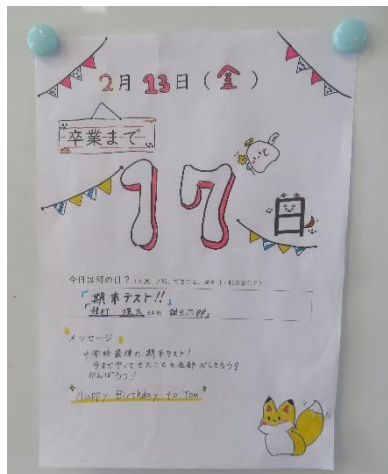 2月13日(金)
卒業まで
17日
今日は何の日?
「期末テスト!!」
メッセージ
小学校最後の期末テスト!
今までやってきたことを全部だしきろう!
がんばろう!!
Happy Birthday to You